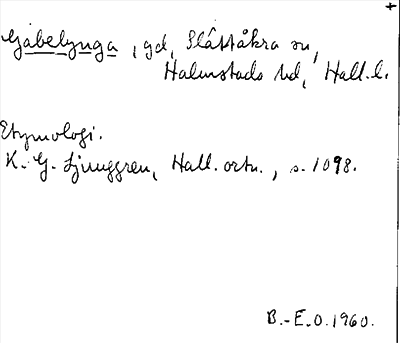 Gåbelynga, gd, Slättåkra sn,
Halmstads hd, Hall. l.
Etymologi.
K. G. Ljunggren, Hall. ortn., s. 1098.
B.-E.O. 1960.